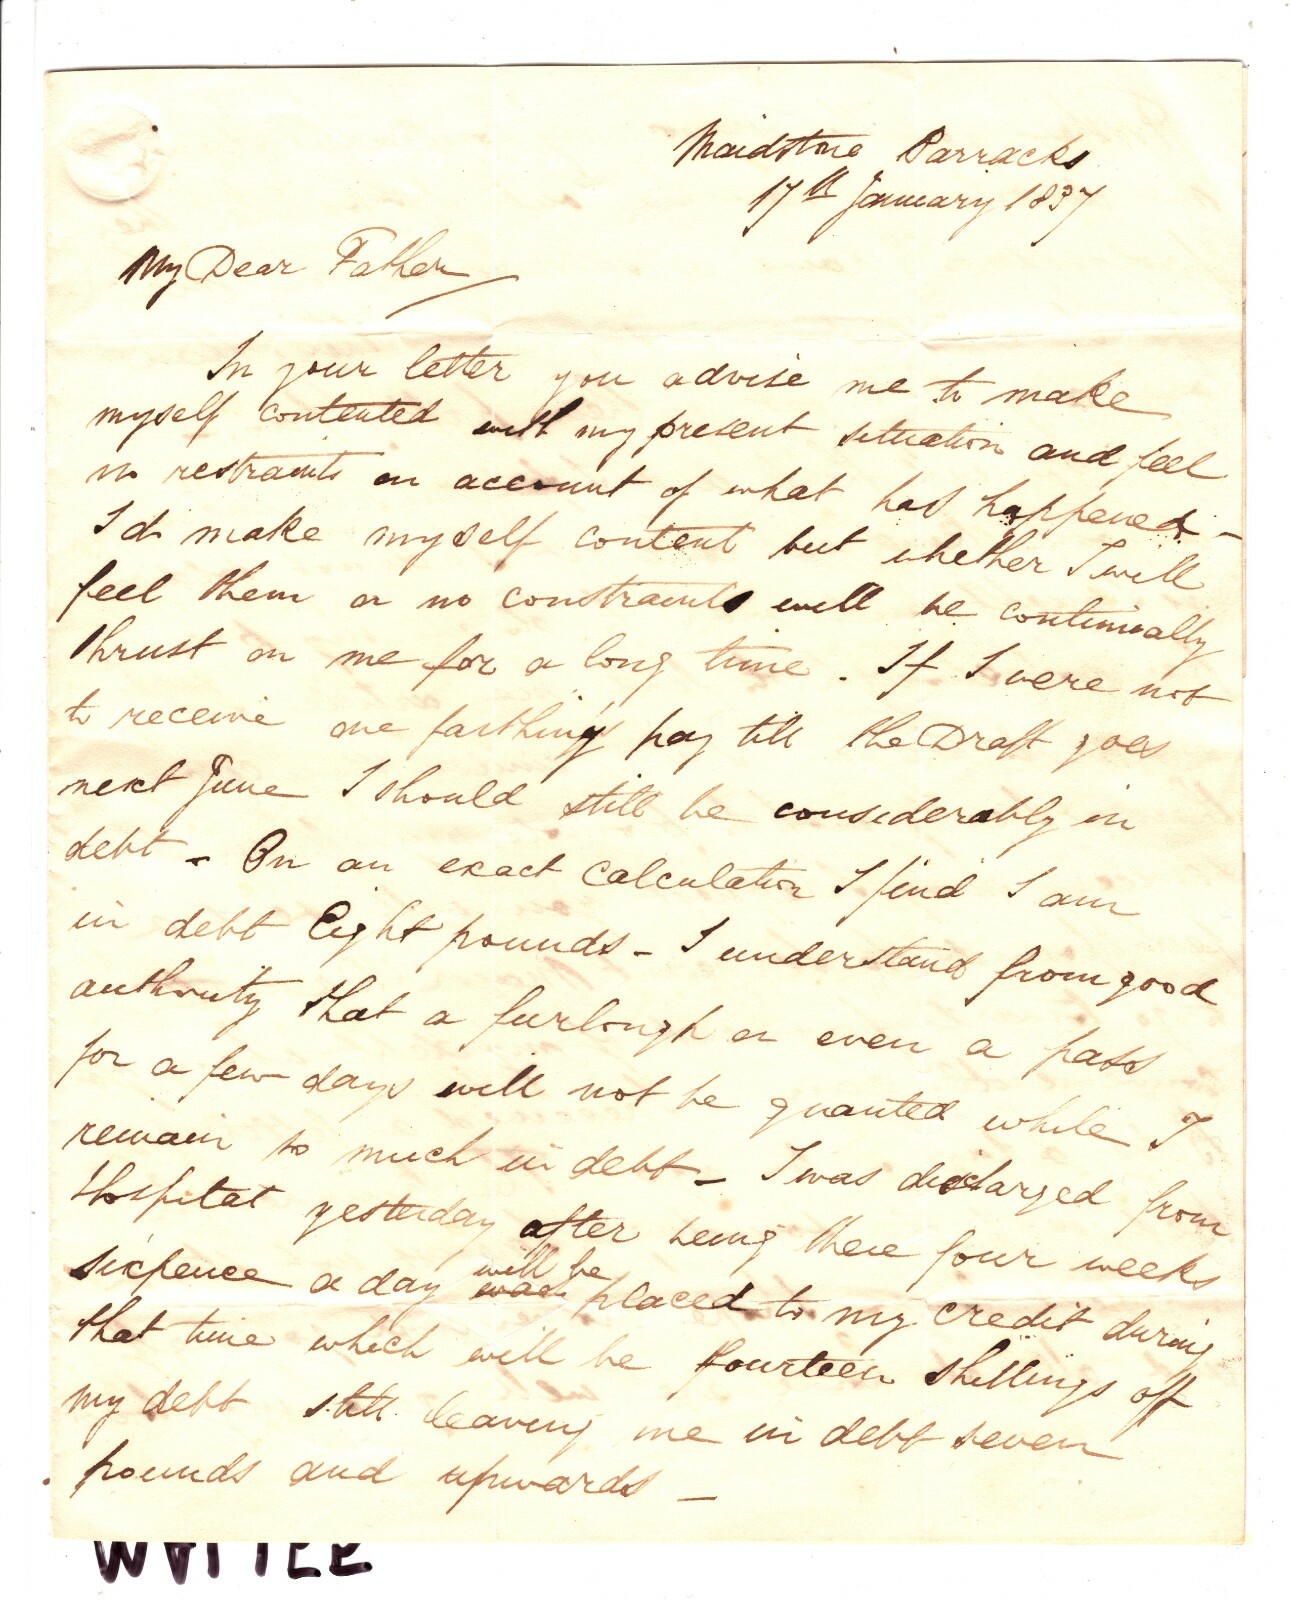 Maidstone Barracks
17th January 1837
My Dear Father
In your letter you advise me to make
myself contented with my present situation and feel
no restraints on account of what has happened -
I do make myself content but whether I will
feel them or no constraints will be continually
thrust on me for a long time. If I were not
to receive one farthing pay till the Draft goes
next June I should still be considerably in
debt - On an exact calculation I find I am
in debt Eight pounds - I understand from good
authority that a furlough or even a pass
for a few days will not be granted while I
remain so much in debt - I was discharged from
Hospital yesterday after being there four weeks
will be
sixpence a day placed to my credit during
that time which will be fourteen shillings off
my debt still leaving me in debt seven
pounds and upwards -